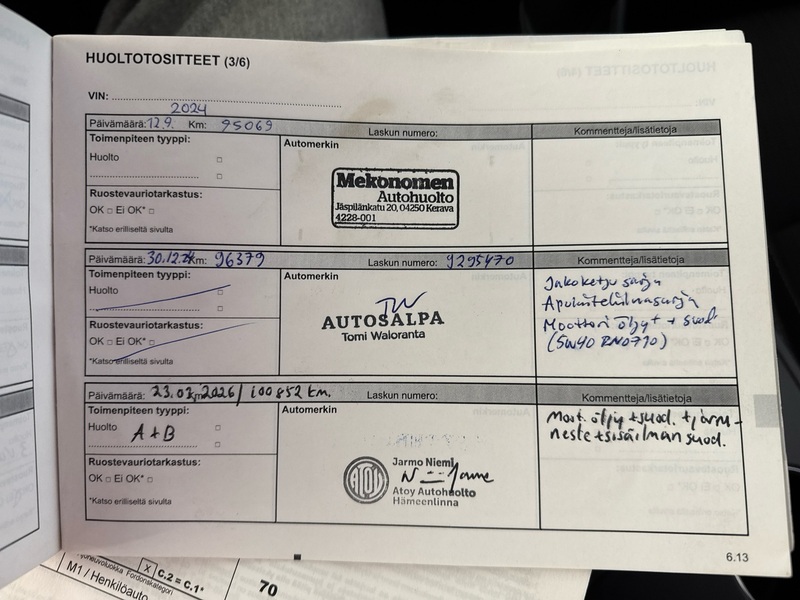 HUOLTOTOSITTEET (3/6)
VIN:
2024
Päivämäärä: 12.9. Km: 95069 Laskun numero: Kommentteja/lisätietoja
Toimenpiteen tyyppi: Automerkin
Huolto
Mekonomen
Autohuolto
Jäspilänkatu 20, 04250 Kerava
4228-001
Ruostevauriotarkastus:
OK □ Ei OK* □
*Katso erilliseltä sivulta
Päivämäärä: 30.12.24 Km: 96379 Laskun numero: 9295470 Kommentteja/lisätietoja
Toimenpiteen tyyppi: Automerkin
Huolto
TW
AUTOSALPA
Tomi Waloranta
Ruostevauriotarkastus:
OK □ Ei OK* □
*Katso erilliseltä sivulta
Jakoketju sarja
Apulaitehihnasarja
Moottori öljyt + suod.
(5W40 RN0710)
Päivämäärä: 23.02.2026/ Km: 100852 km. Laskun numero: Kommentteja/lisätietoja
Toimenpiteen tyyppi: Automerkin
Huolto A+B
Ruostevauriotarkastus:
OK □ Ei OK* □
*Katso erilliseltä sivulta
ATOY
Jarmo Niemi
Atoy Autohuolto
Hämeenlinna
Moot. öljy + suod. + jarru-
neste + sisäilman suod.
6.13
Ajoneuvoluokka Fordonskategori
X C.2 = C.1*
M1 / Henkilöauto
70